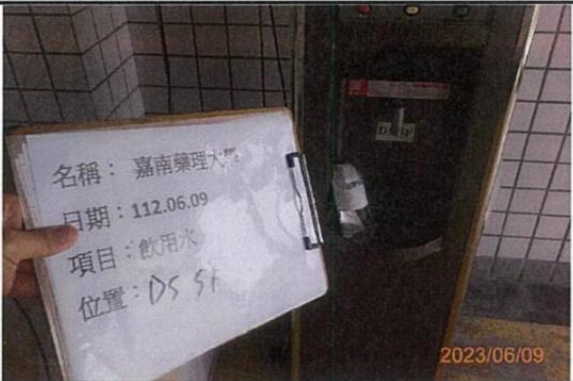 名稱：嘉南藥理大學
日期：112.06.09
項目：飲用水
位置：DS 5F
2023/06/09